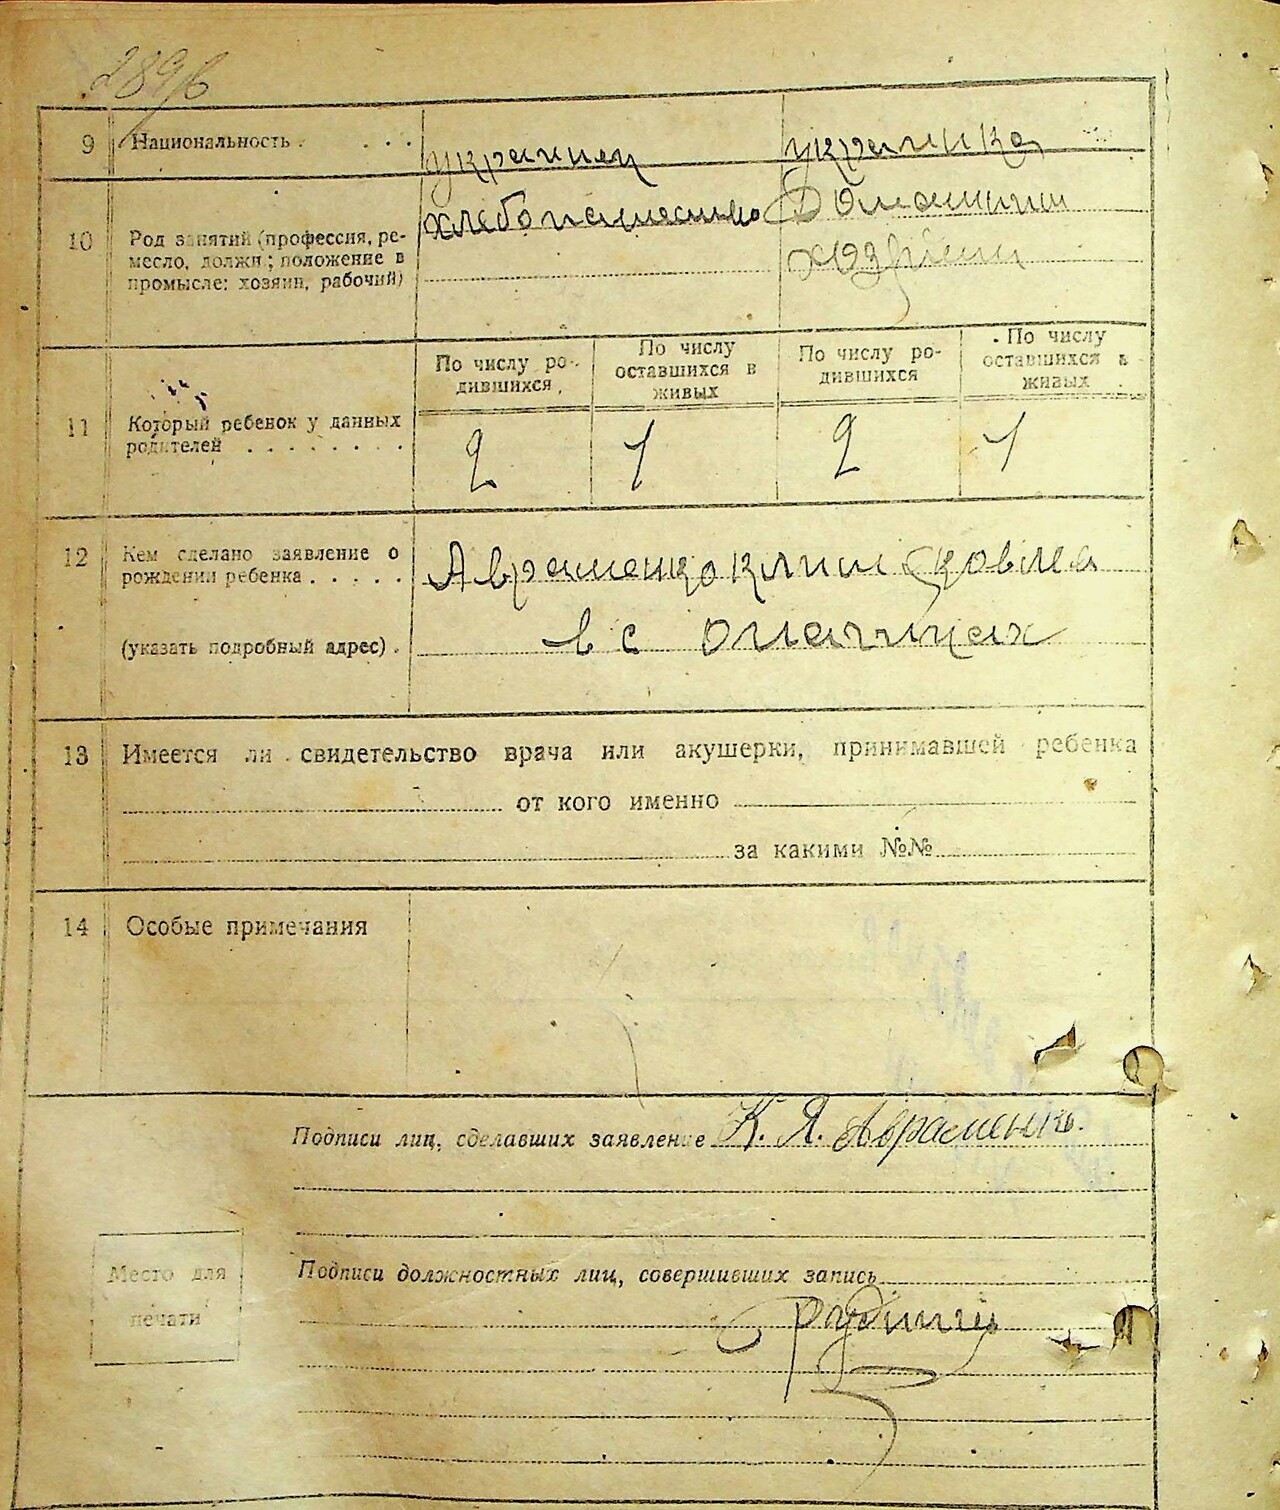 289/в
9 Национальность . . . . украинец украинка
10 Род занятий (профессия, ре-
месло, должн; положение в
промысле: хозяин, рабочий)
хлебопашество Домашнии
хозяики
По числу ро-
дившихся
По числу
оставшихся в
живых
По числу ро-
дившихся
По числу
оставшихся в
живых
11 Который ребенок у данных
родителей . . . . . . . .
2 1 2 1
12 Кем сделано заявление о
рождении ребенка . . . . .
Авраменко Клим
(указать подробный адрес) .
в с
13 Имеется ли свидетельство врача или акушерки, принимавшей ребенка
от кого именно
за какими №№
14 Особые примечания
Подписи лиц, сделавших заявление К. Я. Авраменко.
Подписи должностных лиц, совершивших запись
Место для
печати